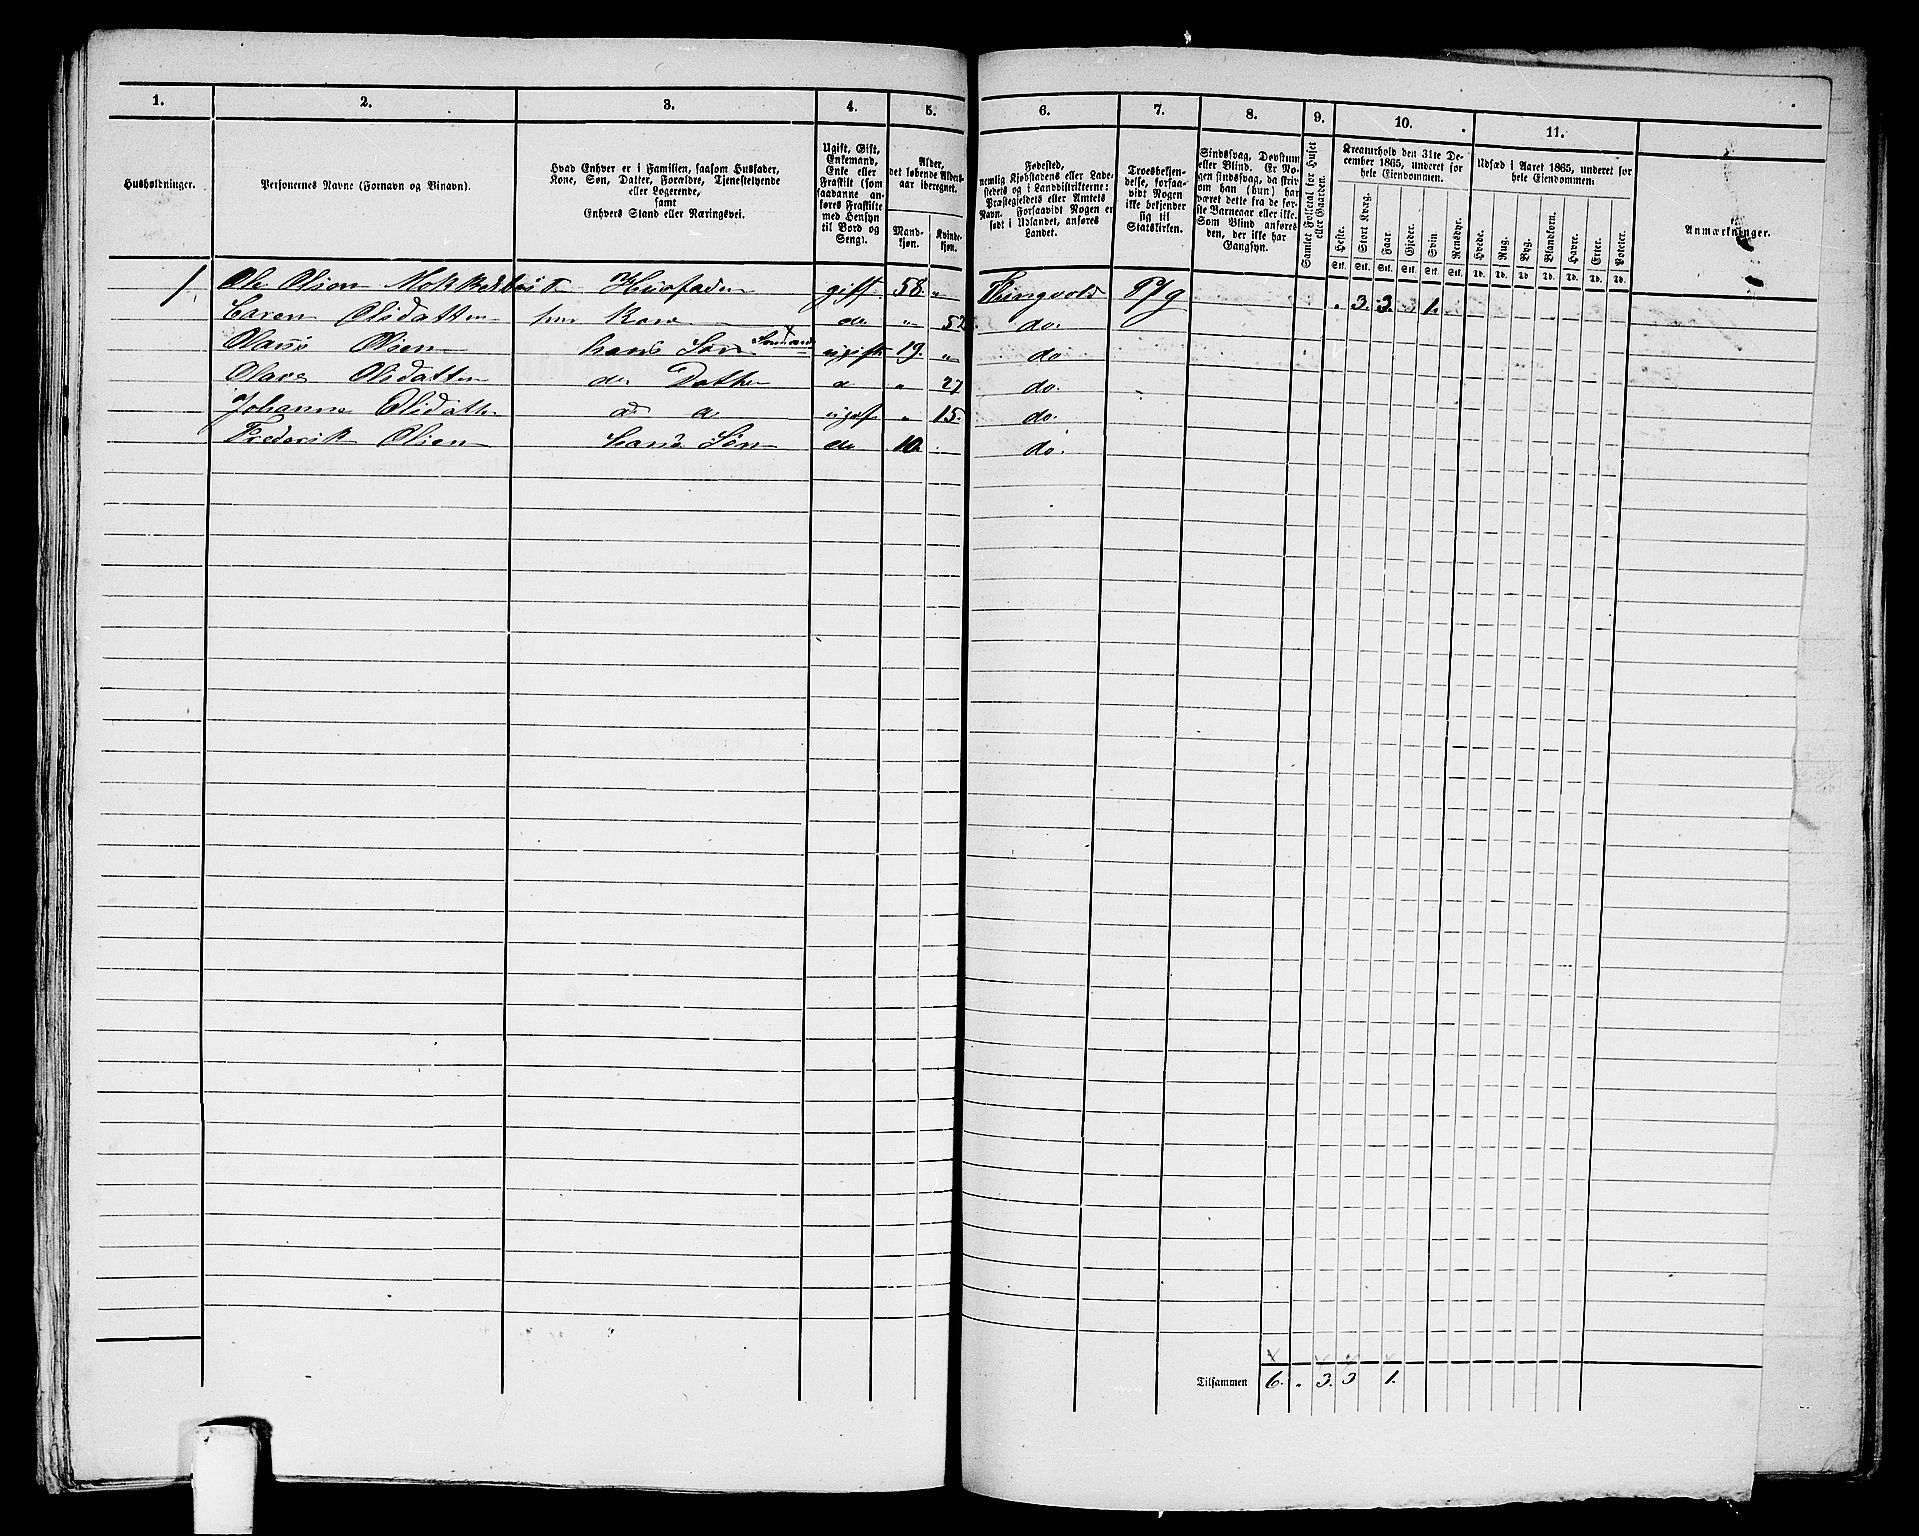 1. 2. 3. 4. 5. 6. 7. 8. 9. 10. 11.
Husholdninger.
Personernes Navne (Fornavn og Binavn).
Hvad Enhver er i Familien, saasom Husfader,
Kone, Søn, Datter, Forældre, Tjenestetyende
eller Logerende,
samt
Enhvers Stand eller Næringsvei.
Ugift, Gift,
Enkemand,
Enke eller
Fraskilt (som
saadanne an-
føres Fraskilte
med Hensyn
til Bord og
Seng).
Alder,
det løbende Alders-
aar iberegnet.
Mand-
kjøn.
Kvinde-
kjøn.
Fødested,
nemlig Kjøbstadens eller Lade-
stedets og i Landdistrikterne:
Præstegjeldets eller Amtets
Navn. Forsaavidt Nogen er
født i Udlandet, anføres
Landet.
Troesbekjen-
delse, forsaa-
vidt Nogen
ikke bekjender
sig til
Statskirken.
Sindssvag, Døvstum
eller Blind. Er No-
gen sindssvag, da skri-
ves om han (hun) har
været dette fra de før-
ste Barneaar eller ikke.
Som Blind anføres
den, der ikke har
Gangsyn.
Samlet Folketal for Huset
eller Gaarden.
Kreaturhold den 31te De-
cember 1865, underet for
hele Eiendommen.
Heste. Stort Kvæg. Faar. Gjeder. Svin. Rensdyr.
Stk. Stk. Stk. Stk. Stk. Stk.
Udsæd i Aaret 1865, underet for
hele Eiendommen.
Hvede. Rug. Byg. Blandkorn. Havre. Erter. Poteter.
Td. Td. Td. Td. Td. Td. Td.
Anmærkninger.
1. Ole Olsen Husfader gift 58 " Thingvold . 3. 3. . 1.
Caren Olsdatter hans Kone do " 52 do.
Olsen hans Søn ugift 19. " do
Olsdatter do Datter " 27 do.
Johanne Olsdatter ugift " 15. do.
Frederik Olsen hans Søn do 10 . do.
Tilsammen 6. . 3. 3 1.